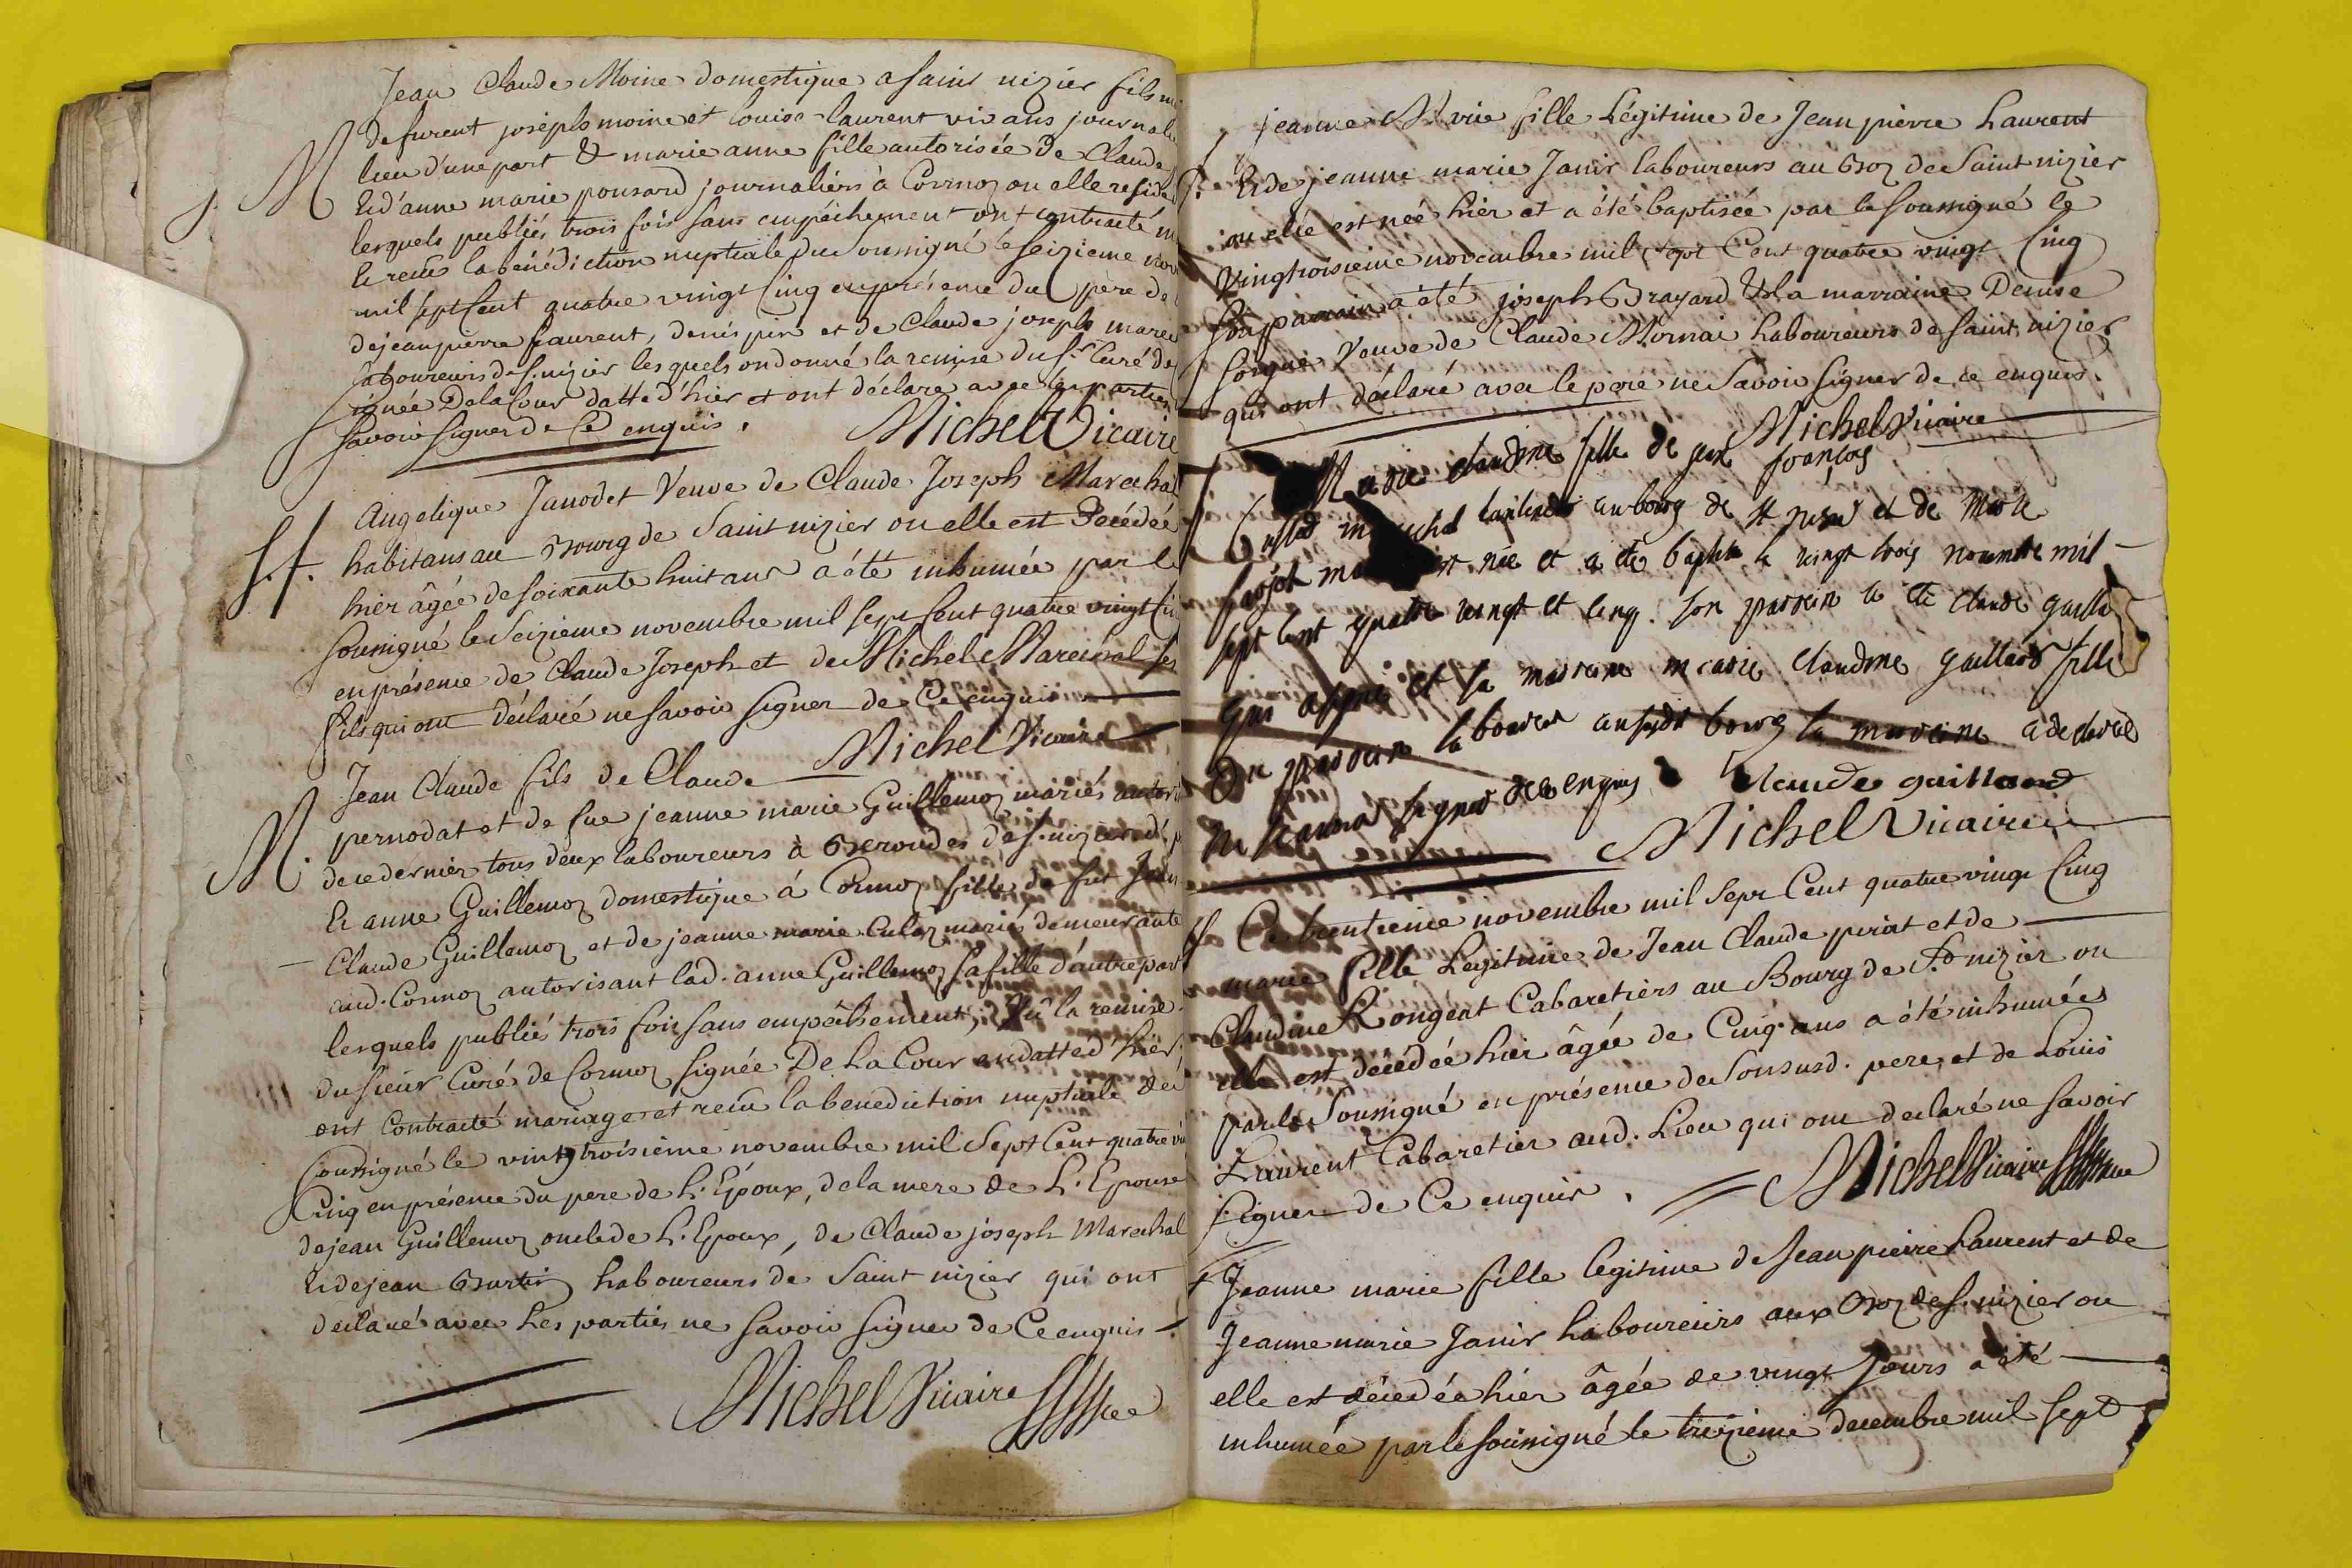 Jean Claude Moine domestique a saint nizier fils
de furent joseph moine et louise laurent vivans journal
lieu d'une part & marie anne fille autorisée de Claude
& d'anne marie ponsard journaliers à Cormoz ou elle reside
lesquels publiés trois fois sans empêchement ont contracté m
& recu la bénédiction nuptiale du soussigné le seizieme nov
mil sept Cent quatre vingt Cinq en présence du père de
de jean pierre Laurent, denis et de Claude joseph marec
laboureurs de S. nizier lesquels on donné la remise du Sr. Curé de
signée Delacour datté d'hier et ont déclaré avec les parties
savoir signer de Ce enquis.
Michel Vicaire
M
S.
Angelique Janodet Veuve de Claude Joseph Marechal
habitans au Bourg de Saint nizier ou elle est Decédée
hier âgée de soixante huit ans a été inhumée par le
soussigné le Seizieme novembre mil sept Cent quatre vingt Ci
en présence de Claude Joseph et de Michel Marechal ses
fils qui ont déclaré ne savoir signer de Ce enquis
Michel Vicaire
Jean Claude fils de Claude
M.
pernodat et de fue jeanne marie Guillemoz mariés autori
de ce dernier tous deux laboureurs à de S. nizier d'
& anne Guillemoz domestique á Cormoz fille de fut Jean
Claude Guillemoz et de jeanne marie mariés demeurante
aud. Cormoz autorisant lad. anne Guillemoz sa fille d'autre part
lesquels publiés trois fois sans empêchement, Vû la remise
du sieur Curé de Cormoz signée De La Cour en datte d'hier
ont Contracté mariage et recu la benediction nuptiale de
soussigné le vingt troisieme novembre mil Sept Cent quatre vi
Cinq en présence du pere de L'Epoux, de la mere de L'Epouse
de jean Guillemoz oncle de L'Epoux, de Claude joseph Marechal
& de jean Burtin Laboureurs de Saint nizier qui ont
déclaré avec Les parties ne savoir signer de Ce enquis
Michel Vicaire
jeanne Marie fille Légitime de Jean pierre Laurent
& de jeanne marie Janir laboureurs au Broz de Saint nizier
ou elle est née hier et a été baptisée par le soussigné le
Vingtroisieme novembre mil Sept Cent quatre vingt Cinq
Son parrain a été joseph Brayard & la marraine Denise
Veuve de Claude Mornai Laboureurs de Saint nizier
qui ont déclaré avec le pere ne Savoir signer de ce enquis.
Michel Vicaire
Marie claudine fille de jean françois
au bourg de st nizier et de Marie
née et a été baptisée le vingt trois novembre mil
sept cent quatre vingt et cinq. son parrain a été claude gailla
qui a signé et sa marraine marie claudine gaillard fille
du parrain laboureur au susdit bourg la marraine a declaré
ne savoir signer de ce enquis claude gaillard
Michel Vicaire
Ce trentieme novembre mil Sept Cent quatre vingt Cinq
marie fille Legitime de Jean Claude pirat et de
Claudine Rongeat Cabaretiers au Bourg de St nizier ou
elle est décédée hier âgée de Cinq ans a été inhumée
par le Soussigné en présence de Son susd. pere, et de Louis
Laurent Cabaretier aud. Lieu qui ont declaré ne savoir
signer de Ce enquis.
Michel Vicaire
Jeanne marie fille légitime de Jean pierre Laurent et de
Jeanne marie Janir Laboureurs aux Broz de S. nizier ou
elle est décedée hier âgée de vingt Jours a été
inhumée par le soussigné le treizieme decembre mil sept